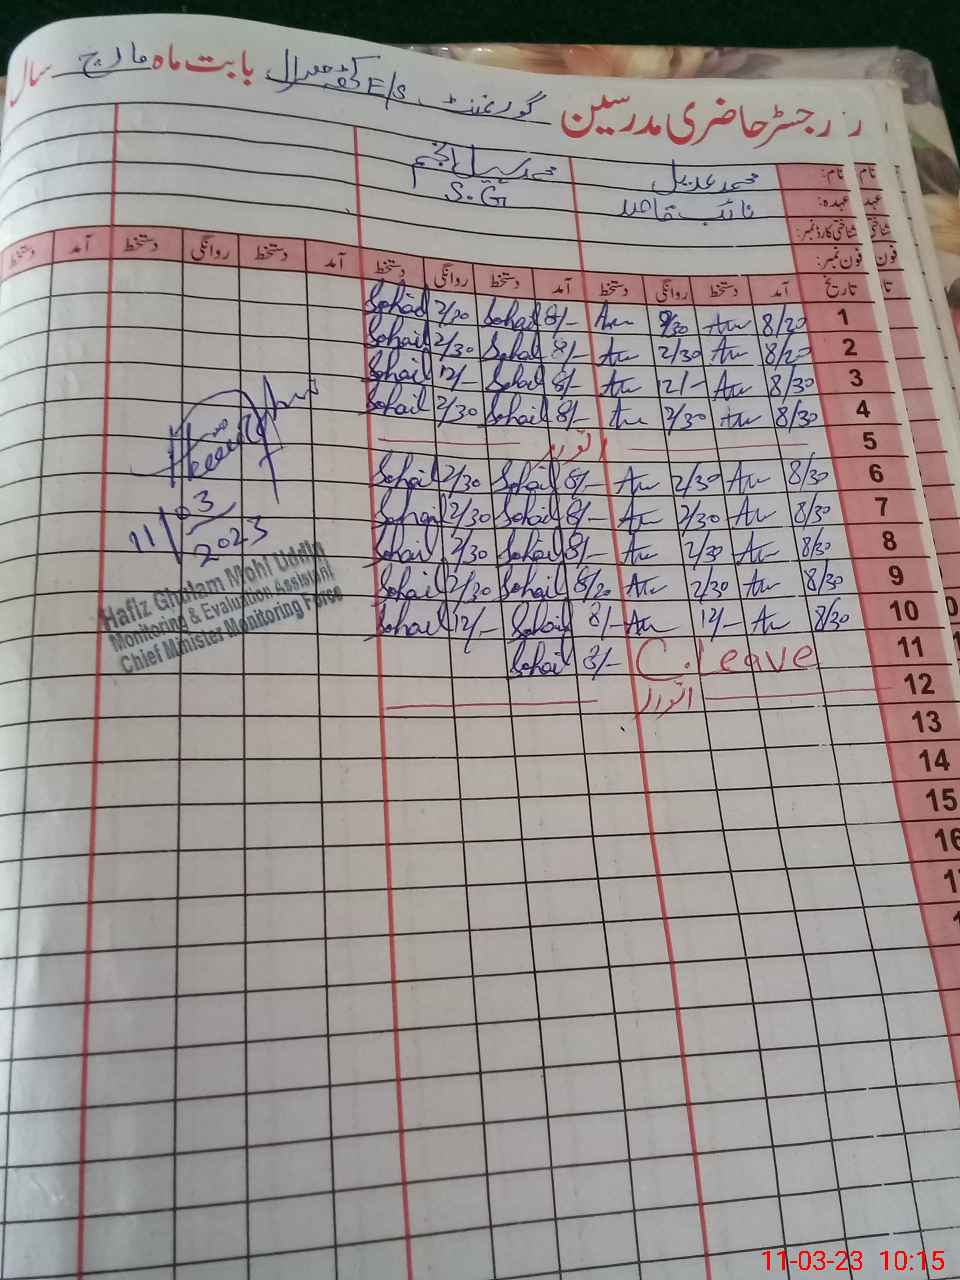 رجسٹر حاضری مدرسین گورنمنٹ E/S بابت ماہ مارچ سال
نام: محمد عدیل محمد سہیل انجم
عہدہ: نائب قاصد S.G
شناختی کارڈ نمبر:
فون نمبر:
تاریخ آمد دستخط روانگی دستخط آمد دستخط روانگی دستخط آمد دستخط روانگی دستخط آمد دستخط
1 8/20 9/30 8/- Sohail 2/30 Sohail
2 8/20 2/30 8/- Sohail 2/30 Sohail
3 8/30 12/- 8/- Sohail 12/- Sohail
4 8/30 2/30 8/- Sohail 2/30 Sohail
5 اتوار
6 8/30 2/30 8/- Sohail 2/30 Sohail
7 8/30 2/30 8/- Sohail 2/30 Sohail
8 8/30 2/30 8/- Sohail 2/30 Sohail
9 8/30 2/30 8/20 Sohail 2/30 Sohail
10 8/30 12/- 8/- Sohail 12/- Sohail
11 C.Leave 8/- Sohail
12 اتوار
13
14
15
16
11/03/2023
Hafiz Ghulam Mohi Uddin
Monitoring & Evaluation Assistant
Chief Minister Monitoring Force
11-03-23 10:15